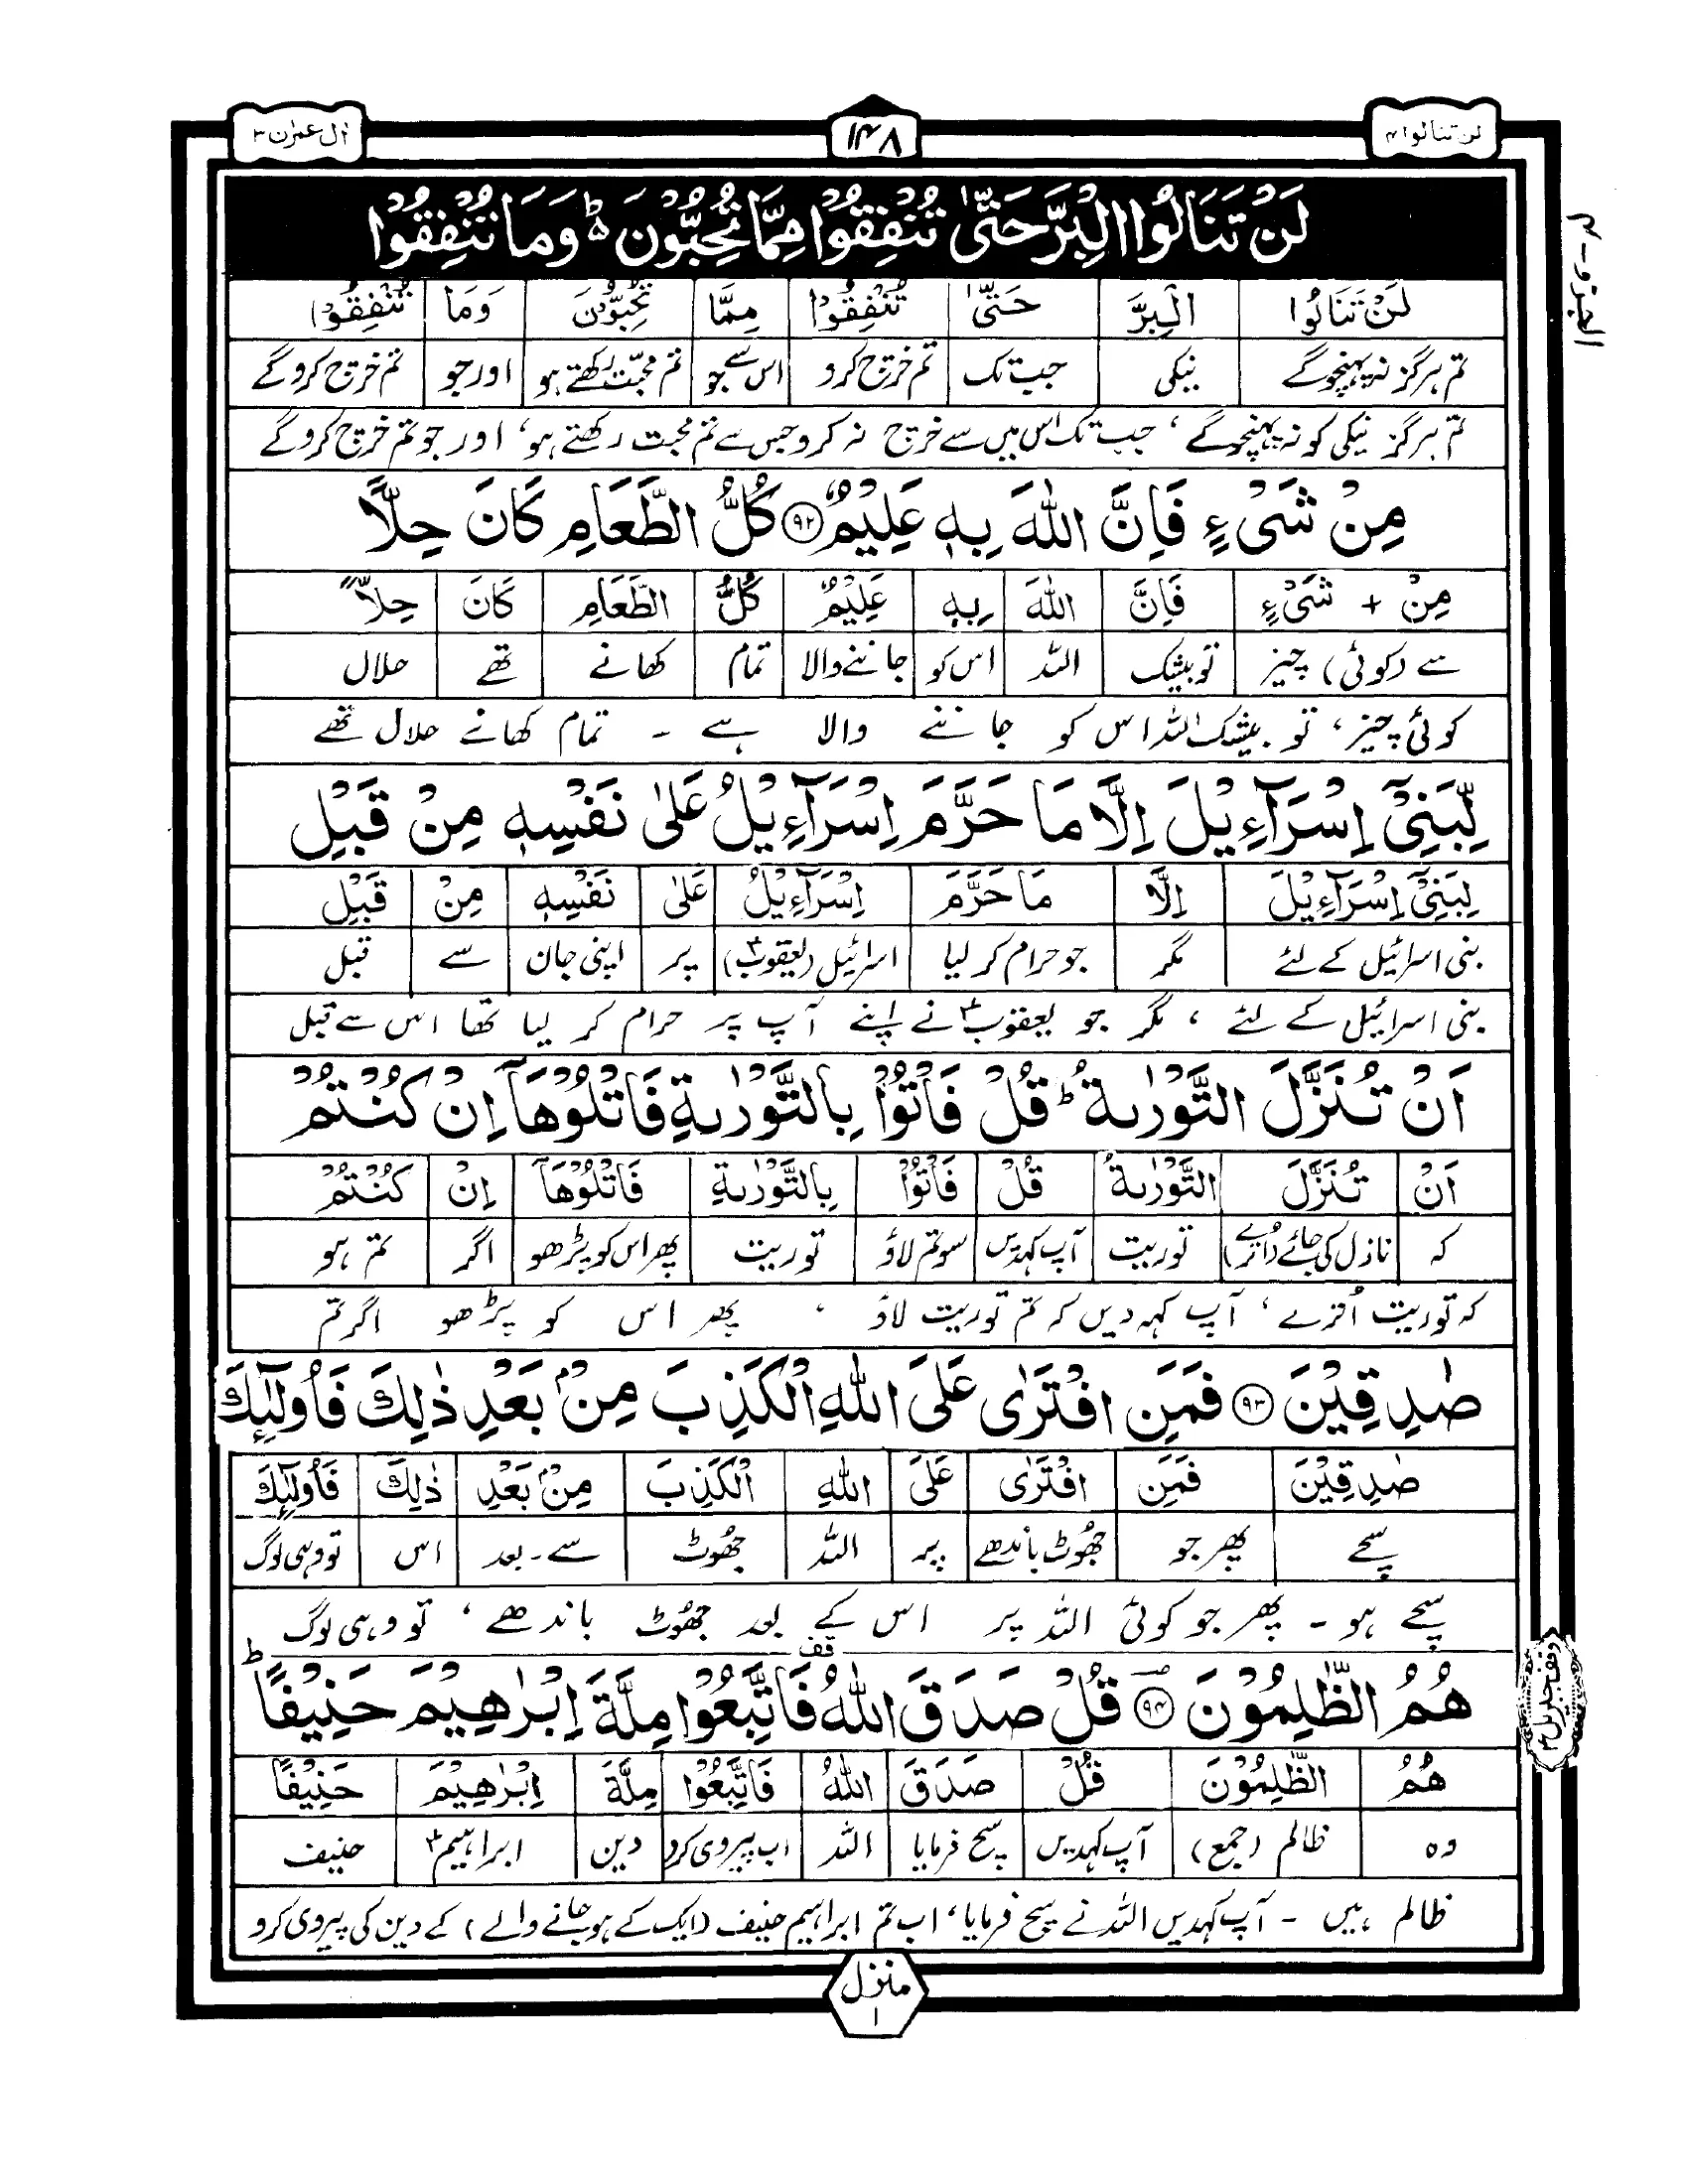 لن تنالوا ۴
۱۴۸
اٰل عمرٰن ۳
الجزو - ۴
لَنْ تَنَالُوا الْبِرَّ حَتّٰى تُنْفِقُوْا مِمَّا تُحِبُّوْنَ ؕ وَمَا تُنْفِقُوْا
لَنْ تَنَالُوا | الْبِرَّ | حَتّٰى | تُنْفِقُوْا | مِمَّا | تُحِبُّوْنَ | وَمَا | تُنْفِقُوْا
تم ہرگز نہ پہنچو گے | نیکی | جب تک | تم خرچ کرو | اس سے جو | تم محبت رکھتے ہو | اور جو | تم خرچ کرو گے
تم ہرگز نیکی کو نہ پہنچو گے ، جب تک اس میں سے خرچ نہ کرو جس سے تم محبت رکھتے ہو، اور جو تم خرچ کرو گے
مِنْ شَیْءٍ فَاِنَّ اللّٰهَ بِهٖ عَلِیْمٌ ﴿۹۲﴾ كُلُّ الطَّعَامِ كَانَ حِلًّا
مِنْ + شَیْءٍ | فَاِنَّ | اللّٰهَ | بِهٖ | عَلِیْمٌ | كُلُّ | الطَّعَامِ | كَانَ | حِلًّا
سے (کوئی) چیز | تو بیشک | اللہ | اس کو | جاننے والا | تمام | کھانے | تھے | حلال
کوئی چیز، تو بیشک اللہ اس کو جاننے والا ہے - تمام کھانے حلال تھے
لِّبَنِیْۤ اِسْرَآءِیْلَ اِلَّا مَا حَرَّمَ اِسْرَآءِیْلُ عَلٰى نَفْسِهٖ مِنْ قَبْلِ
لِبَنِیْۤ اِسْرَآءِیْلَ | اِلَّا | مَا حَرَّمَ | اِسْرَآءِیْلُ | عَلٰى | نَفْسِهٖ | مِنْ | قَبْلِ
بنی اسرائیل کے لئے | مگر | جو حرام کر لیا | اسرائیل (یعقوبؑ) | پر | اپنی جان | سے | قبل
بنی اسرائیل کے لئے ، مگر جو یعقوبؑ نے اپنے آپ پر حرام کر لیا تھا اس سے قبل
اَنْ تُنَزَّلَ التَّوْرٰىةُ ؕ قُلْ فَاْتُوْا بِالتَّوْرٰىةِ فَاتْلُوْهَاۤ اِنْ كُنْتُمْ
اَنْ | تُنَزَّلَ | التَّوْرٰىةُ | قُلْ | فَاْتُوْا | بِالتَّوْرٰىةِ | فَاتْلُوْهَاۤ | اِنْ | كُنْتُمْ
کہ | نازل کی جائے (اُترے) | توریت | آپ کہدیں | سو تم لاؤ | توریت | پھر اس کو پڑھو | اگر | تم ہو
کہ توریت اُترے ، آپ کہہ دیں کہ تم توریت لاؤ ، پھر اس کو پڑھو اگر تم
صٰدِقِیْنَ ﴿۹۳﴾ فَمَنِ افْتَرٰى عَلَى اللّٰهِ الْكَذِبَ مِنْۢ بَعْدِ ذٰلِكَ فَاُولٰٓئِكَ
صٰدِقِیْنَ | فَمَنِ | افْتَرٰى | عَلَى | اللّٰهِ | الْكَذِبَ | مِنْۢ بَعْدِ | ذٰلِكَ | فَاُولٰٓئِكَ
سچے | پھر جو | جھوٹ باندھے | پر | اللہ | جھوٹ | سے - بعد | اس | تو وہی لوگ
سچے ہو - پھر جو کوئی اللہ پر اس کے بعد جھوٹ باندھے ، تو وہی لوگ
هُمُ الظّٰلِمُوْنَ ﴿۹۴﴾ قُلْ صَدَقَ اللّٰهُ قف فَاتَّبِعُوْا مِلَّةَ اِبْرٰهِیْمَ حَنِیْفًا ؕ
وقف جبریلؑ
هُمُ | الظّٰلِمُوْنَ | قُلْ | صَدَقَ | اللّٰهُ | فَاتَّبِعُوْا | مِلَّةَ | اِبْرٰهِیْمَ | حَنِیْفًا
وہ | ظالم (جمع) | آپ کہدیں | سچ فرمایا | اللہ | اب پیروی کرو | دین | ابراہیمؑ | حنیف
ظالم ہیں - آپ کہدیں اللہ نے سچ فرمایا، اب تم ابراہیم حنیف (ایک کے ہو جانے والے) کے دین کی پیروی کرو
منزل
۱